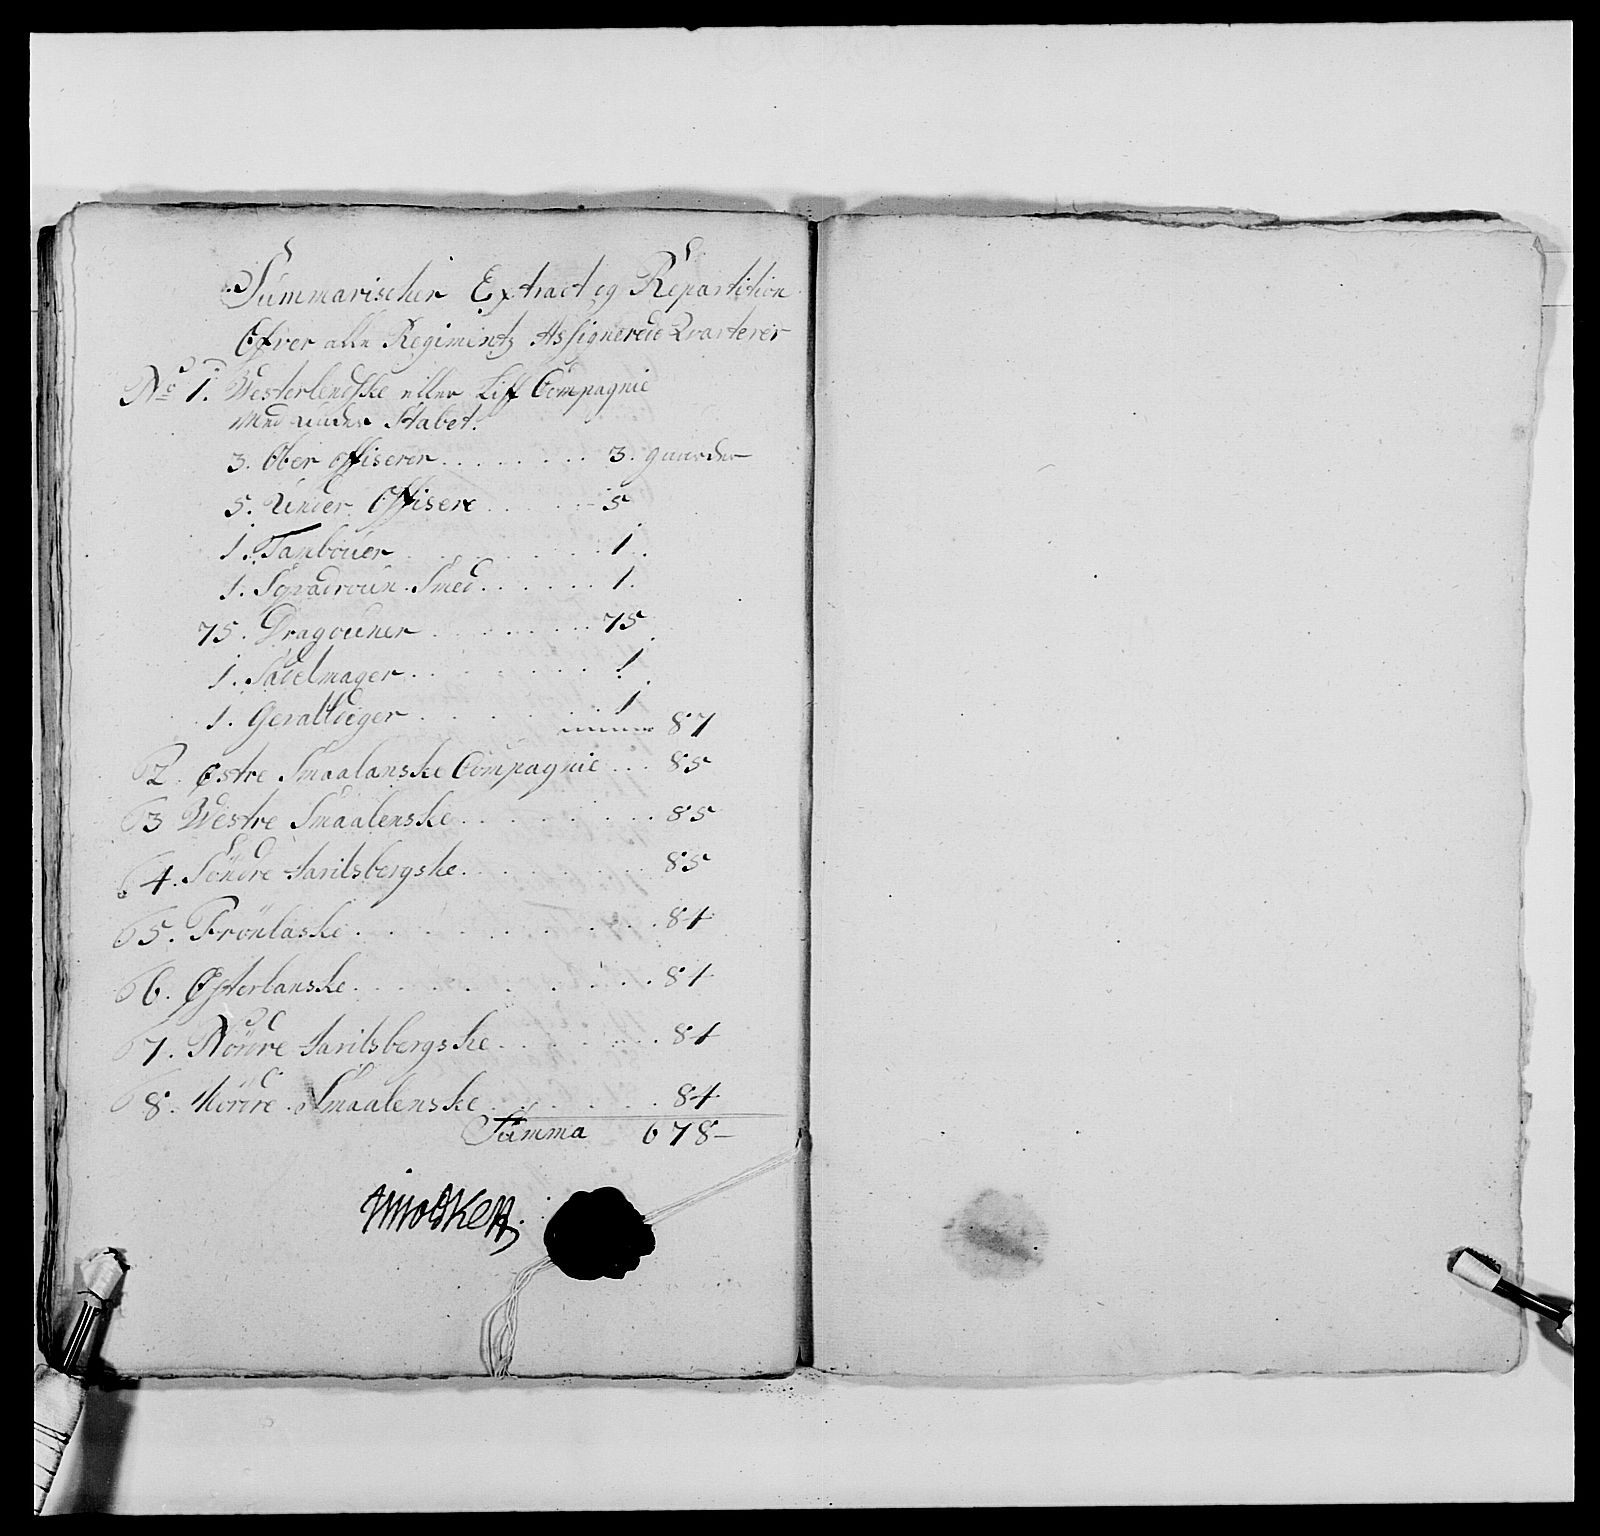 Summarischer Extract og Repartition
Ofver alle Regimentz Assignerede Qvarterer
No 1. Westerlendske eller Liff Compagnie
Med under Stabet.
3. Ober officerer ........ 3. gaarder
5. Under Officere ...... 5
1. Tambouer ........ 1.
1. Sqvadroun Smed ...... 1.
75. Dragouner ....... 75
1. Sadelmager ........ 1
1. Geralldiger ....... 1
87
2. Østre Smaalanske Compagnie ... 85
3 Westre Smaalenske ......... 85
4. Söndre Jarilsbergske ........ 85
5. Frönlaske .......... 84
6. Østerlanske .......... 84
7. Nördre Jarilsbergske ....... 84
8. Nördre Smaalenske ....... 84
Summa 678-